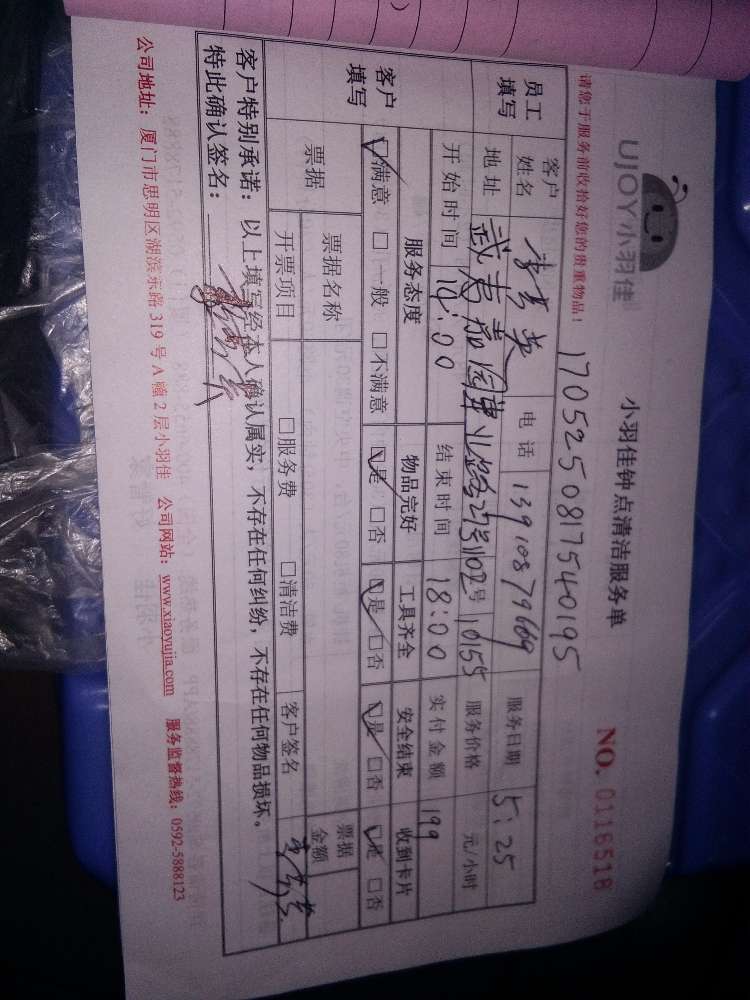 UJOY小羽佳
小羽佳钟点清洁服务单
NO. 0116518
请您于服务前收拾好您的贵重物品！
1705250817540195
员工填写
客户姓名 电话 13910879669 服务日期 5:25
地址 服务价格 元/小时
开始时间 14:00 结束时间 18:00 实付金额 199
客户填写
服务态度 物品完好 工具齐全 安全结束 收到卡片
☑满意 □一般 □不满意 ☑是 □否 ☑是 □否 ☑是 □否 ☑是 □否
票据 票据名称 票据金额
开票项目 □服务费 □清洁费 客户签名
客户特别承诺：以上填写经本人确认属实，不存在任何纠纷，不存在任何物品损坏。
特此确认签名：
公司地址：厦门市思明区湖滨东路319号A幢2层小羽佳 公司网站：www.xiaoyujia.com 服务监督热线：0592-5888123